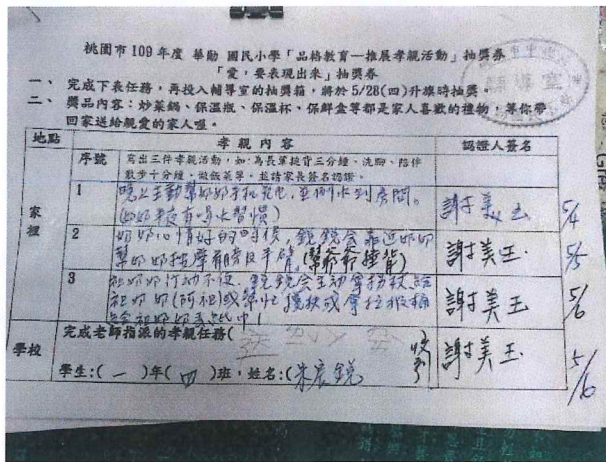 桃園市 109 年度 華勛 國民小學「品格教育—推展孝親活動」抽獎券
「愛，要表現出來」抽獎券
一、 完成下表任務，再投入輔導室的抽獎箱，將於 5/28(四)升旗時抽獎。
二、 獎品內容：炒菜鍋、保溫瓶、保溫杯、保鮮盒等都是家人喜歡的禮物，等你帶
回家送給親愛的家人喔。
輔導室
地點 孝親內容 認證人簽名
序號 寫出三件孝親活動，如:為長輩搥背三分鐘、洗腳、陪伴
散步十分鐘、做飯菜等，並請家長簽名認證。
家裡
1 晚上主動幫奶奶手機充電，並倒水到房間。
(奶奶半夜有喝水習慣) 謝美玉 5/4
2 奶奶心情好的時候，鋭鋭會靠近奶奶
幫奶奶按摩肩膀及手臂。(幫爺爺捶背) 謝美玉 5/5
3 祖奶奶行動不便，鋭鋭會主動拿拐杖給
祖奶奶(阿祖)或幫忙攙扶或拿垃圾桶
給祖奶奶丟紙巾！ 謝美玉 5/6
學校 完成老師指派的孝親任務(
收乾 謝美玉 5/6
學生:(一)年(四)班，姓名:(朱宸鋭